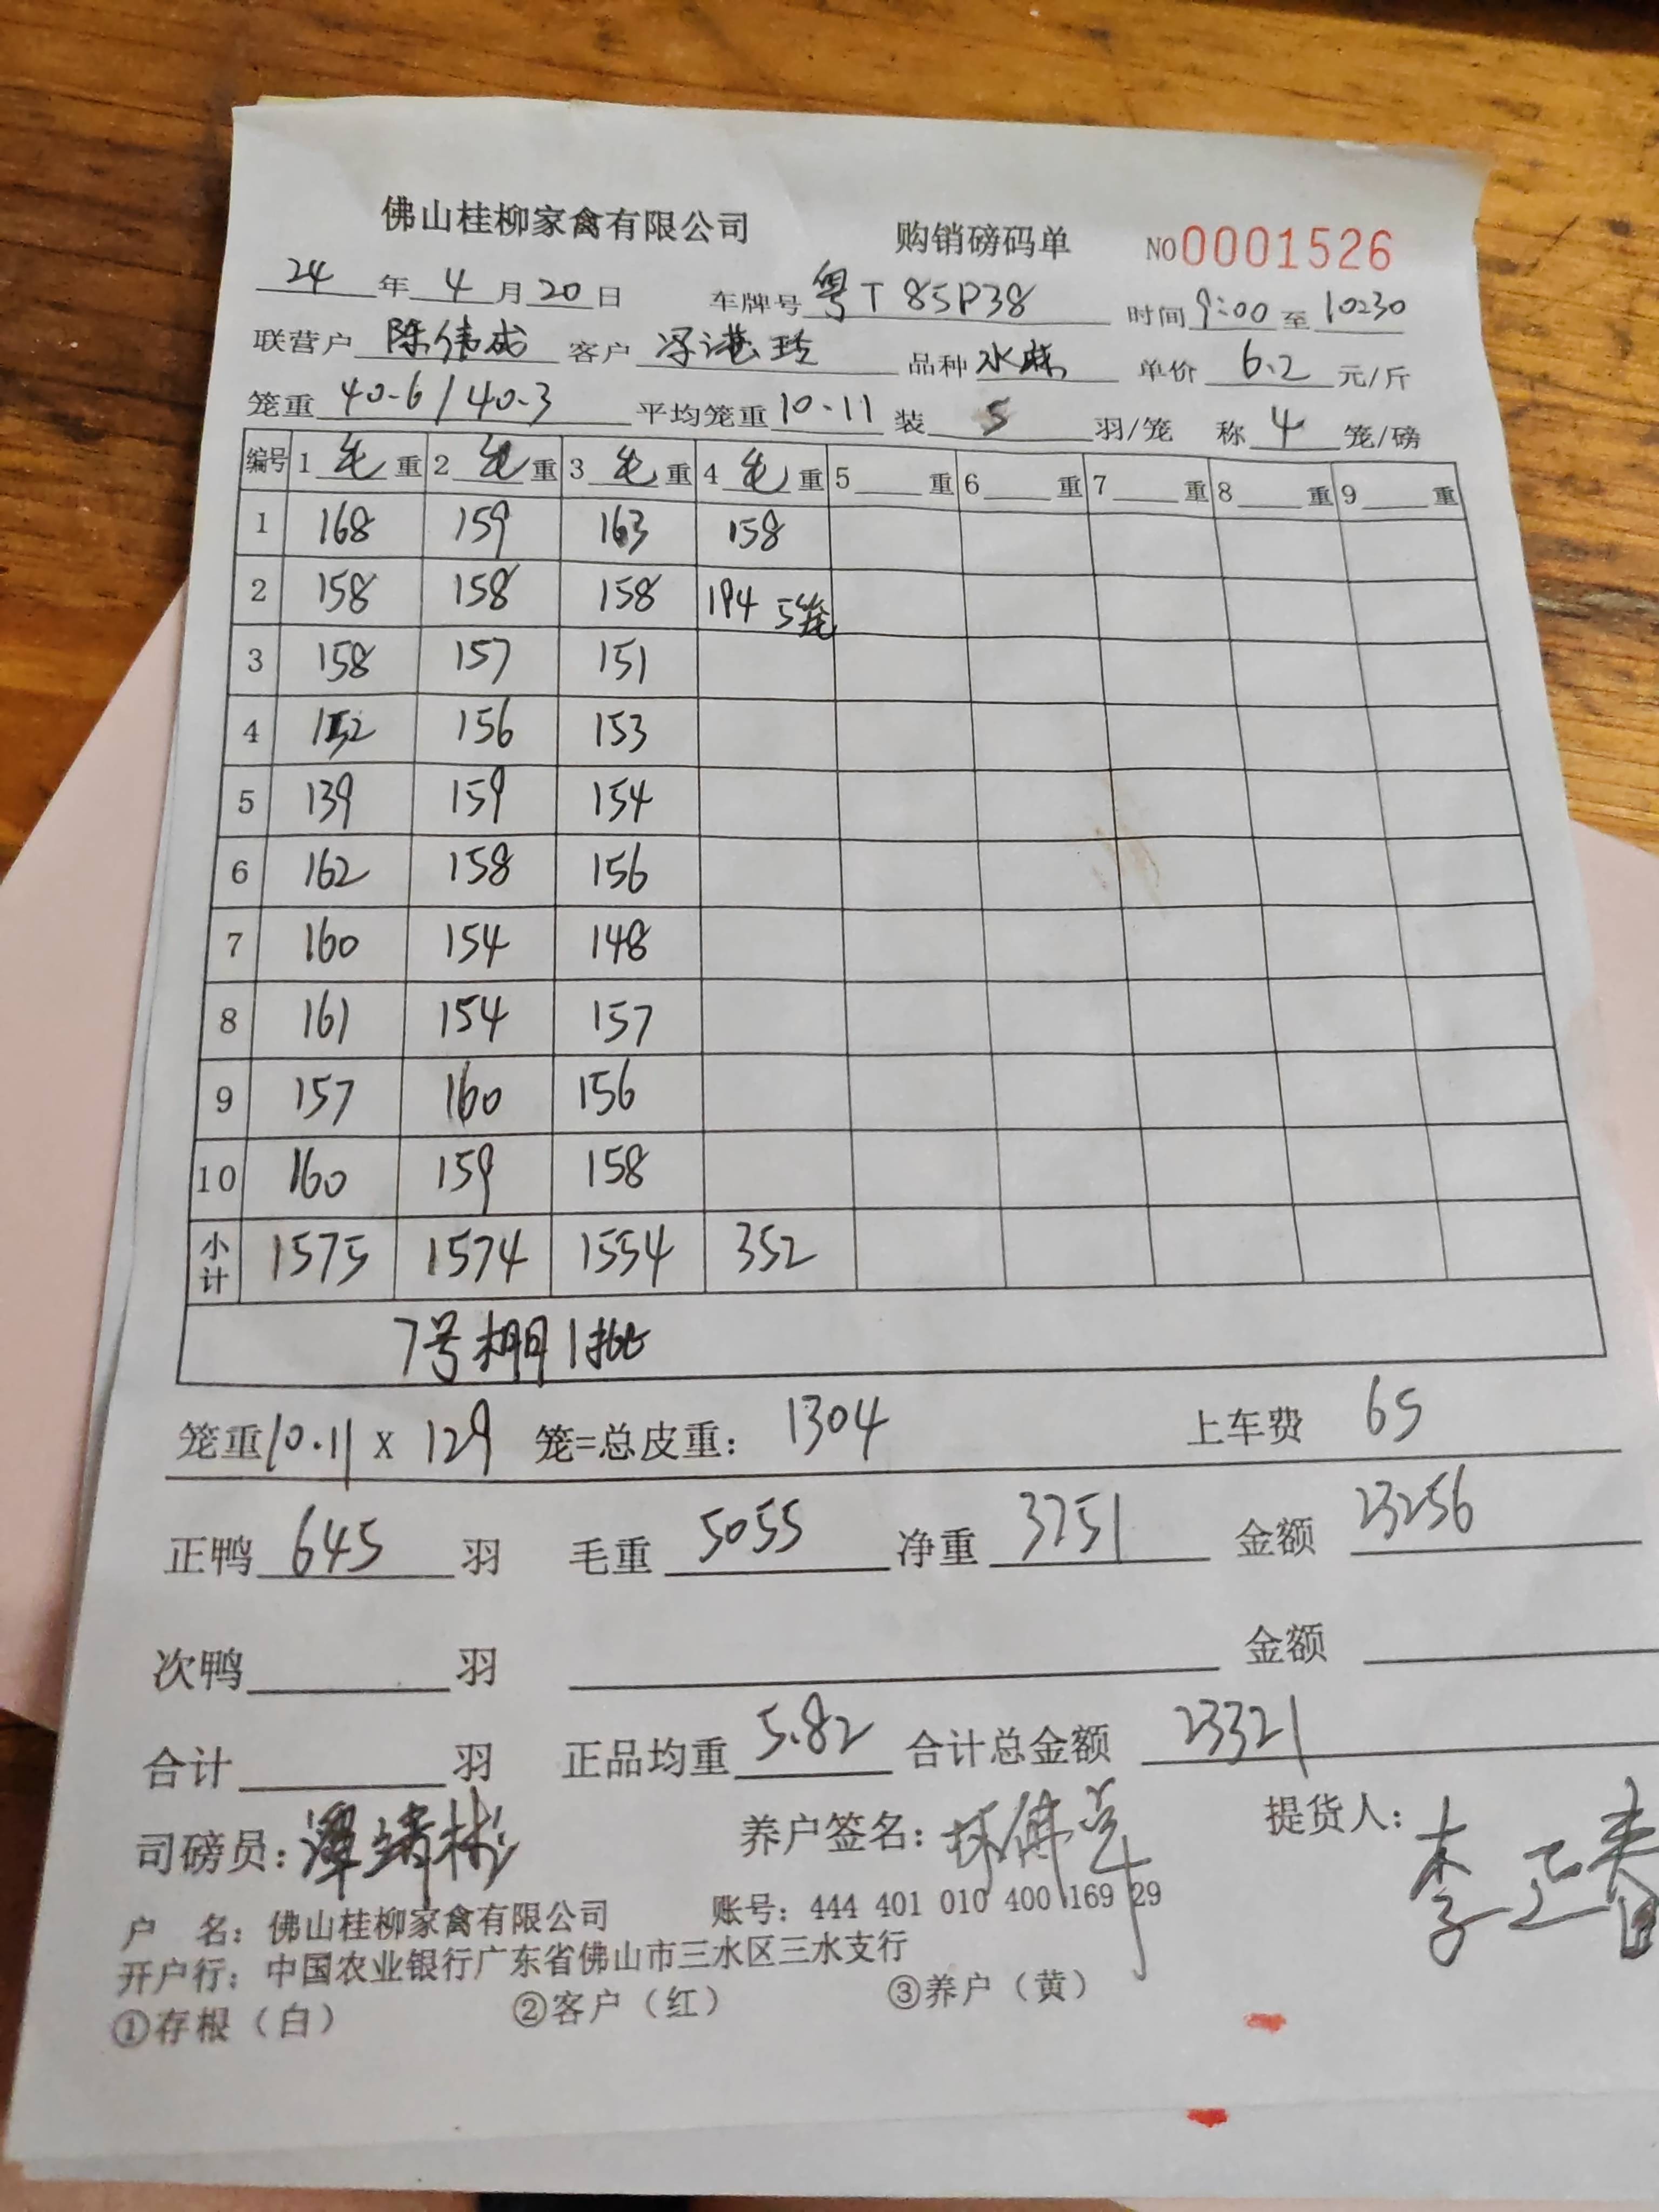 佛山桂柳家禽有限公司 购销磅码单 NO 0001526
24 年 4 月 20 日 车牌号 粤T 85P38 时间 9:00 至 10:30
联营户 陈伟成 客户 冯港玲 品种 水麻 单价 6.2 元/斤
笼重 40.6 / 40.3 平均笼重 10.11 装 5 羽/笼 称 4 笼/磅
编号 1 毛 重 2 毛 重 3 毛 重 4 毛 重 5 重 6 重 7 重 8 重 9 重
1 168 159 163 158
2 158 158 158 194 5笼
3 158 157 151
4 152 156 153
5 139 159 154
6 162 158 156
7 160 154 148
8 161 154 157
9 157 160 156
10 160 159 158
小计 1575 1574 1554 352
7号棚1批
笼重 10.11 x 129 笼=总皮重: 1304 上车费 65
正鸭 645 羽 毛重 5055 净重 3751 金额 23256
次鸭 羽 金额
合计 羽 正品均重 5.82 合计总金额 23321
司磅员: 养户签名: 提货人: 李
户 名: 佛山桂柳家禽有限公司 账号: 444 401 010 400 169 29
开户行: 中国农业银行广东省佛山市三水区三水支行
①存根（白） ②客户（红） ③养户（黄）